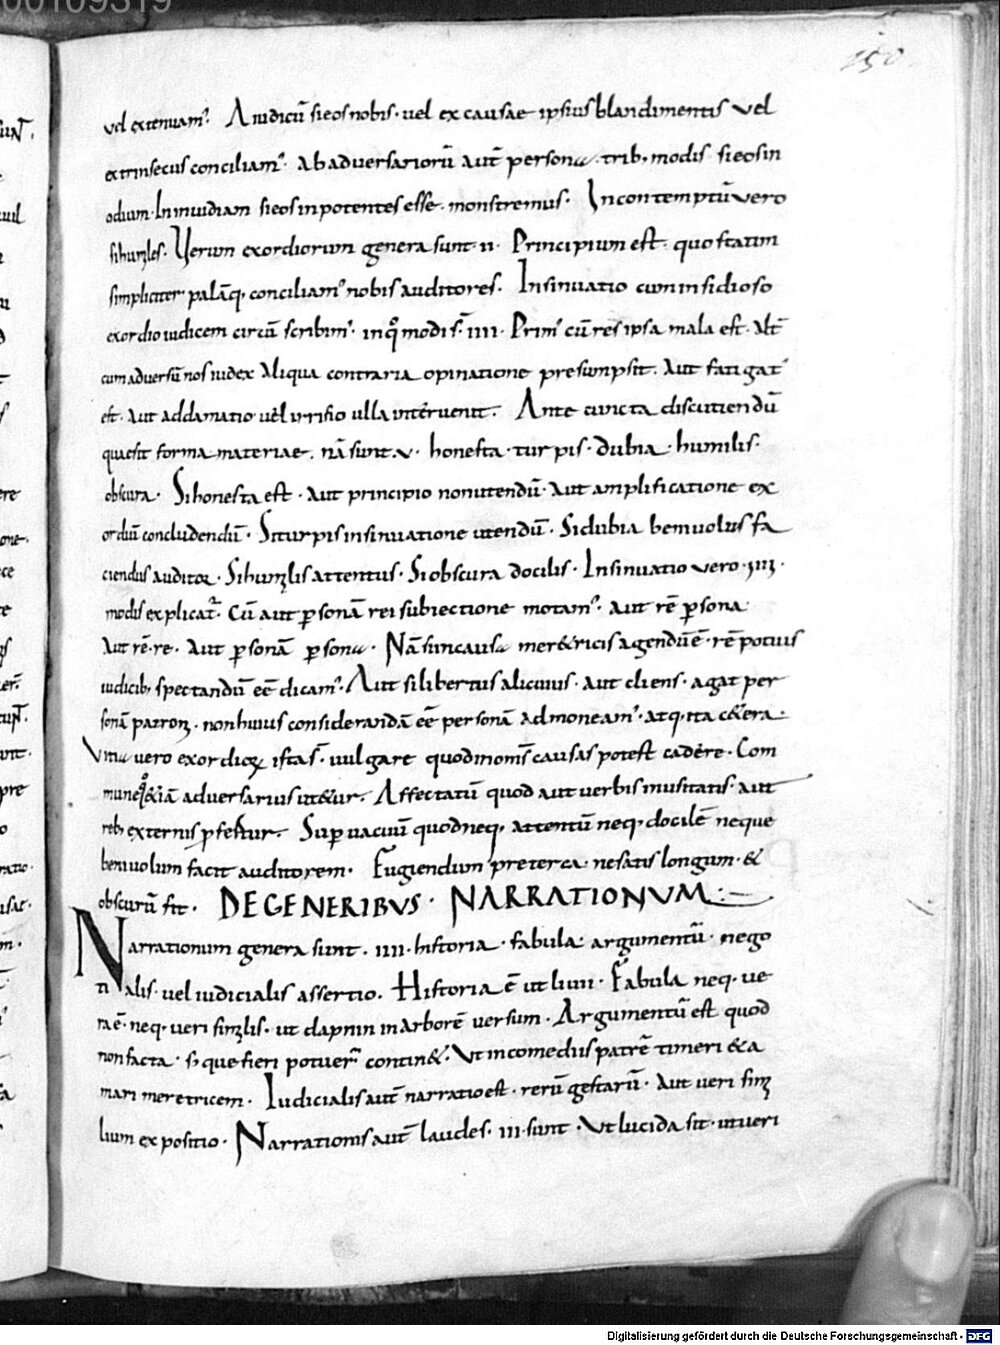 00109319
150
vel extenuam᷒. A iudicū si eos nobis · vel ex causae ipsius blandimentis vel
extrinsecus conciliam᷒. Ab adversariorū aut̄ persona · trib; modis · si eos in
odium · In invidiam si eos inpotentes esse · monstremus · In contemptū vero
si humiles · Verum exordiorum genera sunt · ii · Principium est · quo statim
simpliciter palāq; conciliam᷒ nobis auditores. Insinuatio cum insidioso
exordio iudicem circū scribim᷒ · in qͦ modi s̄ · iiii · Prim᷒ cū res ipsa mala est · Aut̄
cum adversū nos iudex aliqua contraria opinatione presumpsit. Aut fatigat᷒
est. Aut adclamatio vel irrisio ulla intervenit. Ante cuncta discutiendū
quae sit forma materiae. nā sunt · v · honesta · turpis · dubia · humilis ·
obscura · Si honesta est · aut principio non utendū · aut amplificatione ex
ordiū concludendū · Si turpis insinuatione utendū · Si dubia benivolus fa
ciendus auditor · Si humilis attentus · Si obscura docilis · Insinuatio vero · iiii ·
modis explicat᷒ · Cū aut ꝑsonam rei subiectione motam᷒ · aut rē ꝑsona
aut rē · re · aut ꝑsonā ꝑsona · Nā si in causa meretricis agendū ē · rē potius
iudicib; spectandū eē dicam᷒ · Aut si libertus alicuius · aut cliens · agat per
sonā patroni · non huius considerandā eē personā admoneam᷒ · atq; ita c&era ·
Vitia vero exordioꝝ ista s̄ · vulgare quod in om̄s causas potest cadere · Com
mune qͦ &iā adversarius ut&ur · Affectatū quod aut verbis inusitatis · aut
reb; externis ꝑfertur · Supervacuū quod neq; attentū neq; docilē neque
benivolum facit auditorem · Fugiendum preterea · ne satis longum · &
obscurū sit · DE GENERIBUS · NARRATIONUM
Narrationum genera sunt · iiii · historia · fabula · argumentū · nego
tialis · vel iudicialis assertio · Historia ē ut livii · Fabula neq · ve
ra ē · neq; veri similis · ut dapnin in arborē versum · Argumentū est quod
non facta · s; que fieri potuer̄ contin& · Ut in comediis patrē timeri & a
mari meretricem · Iudicialis aut̄ narratio est · rerū gestarū · Aut veri simi
lium expositio · Narrationis aut̄ laudes · iii · sunt · Ut lucida sit · ut veri
Digitalisierung gefördert durch die Deutsche Forschungsgemeinschaft - DFG